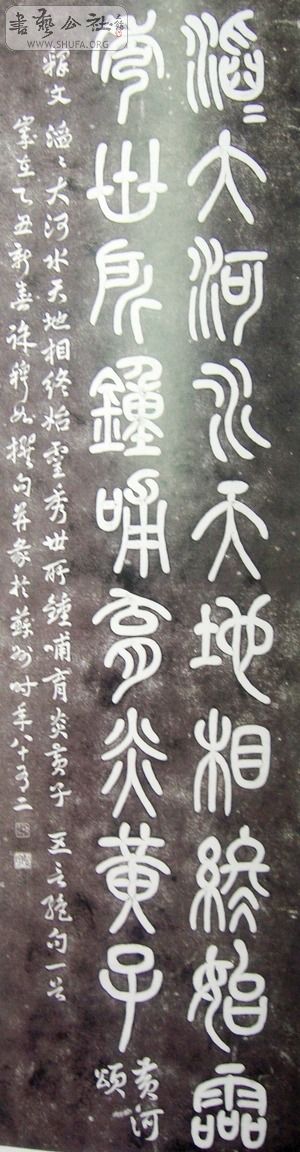 書藝公社
WWW.SHUFA.ORG
滔〻大河水天地相終始靈
秀世所鐘哺育炎黃子
黃河
頌
釋文 滔〻大河水天地相終始靈秀世所鍾哺育炎黃子 五言絕句一首
歲在乙丑新春 撰句并篆於蘇州時年八十有二